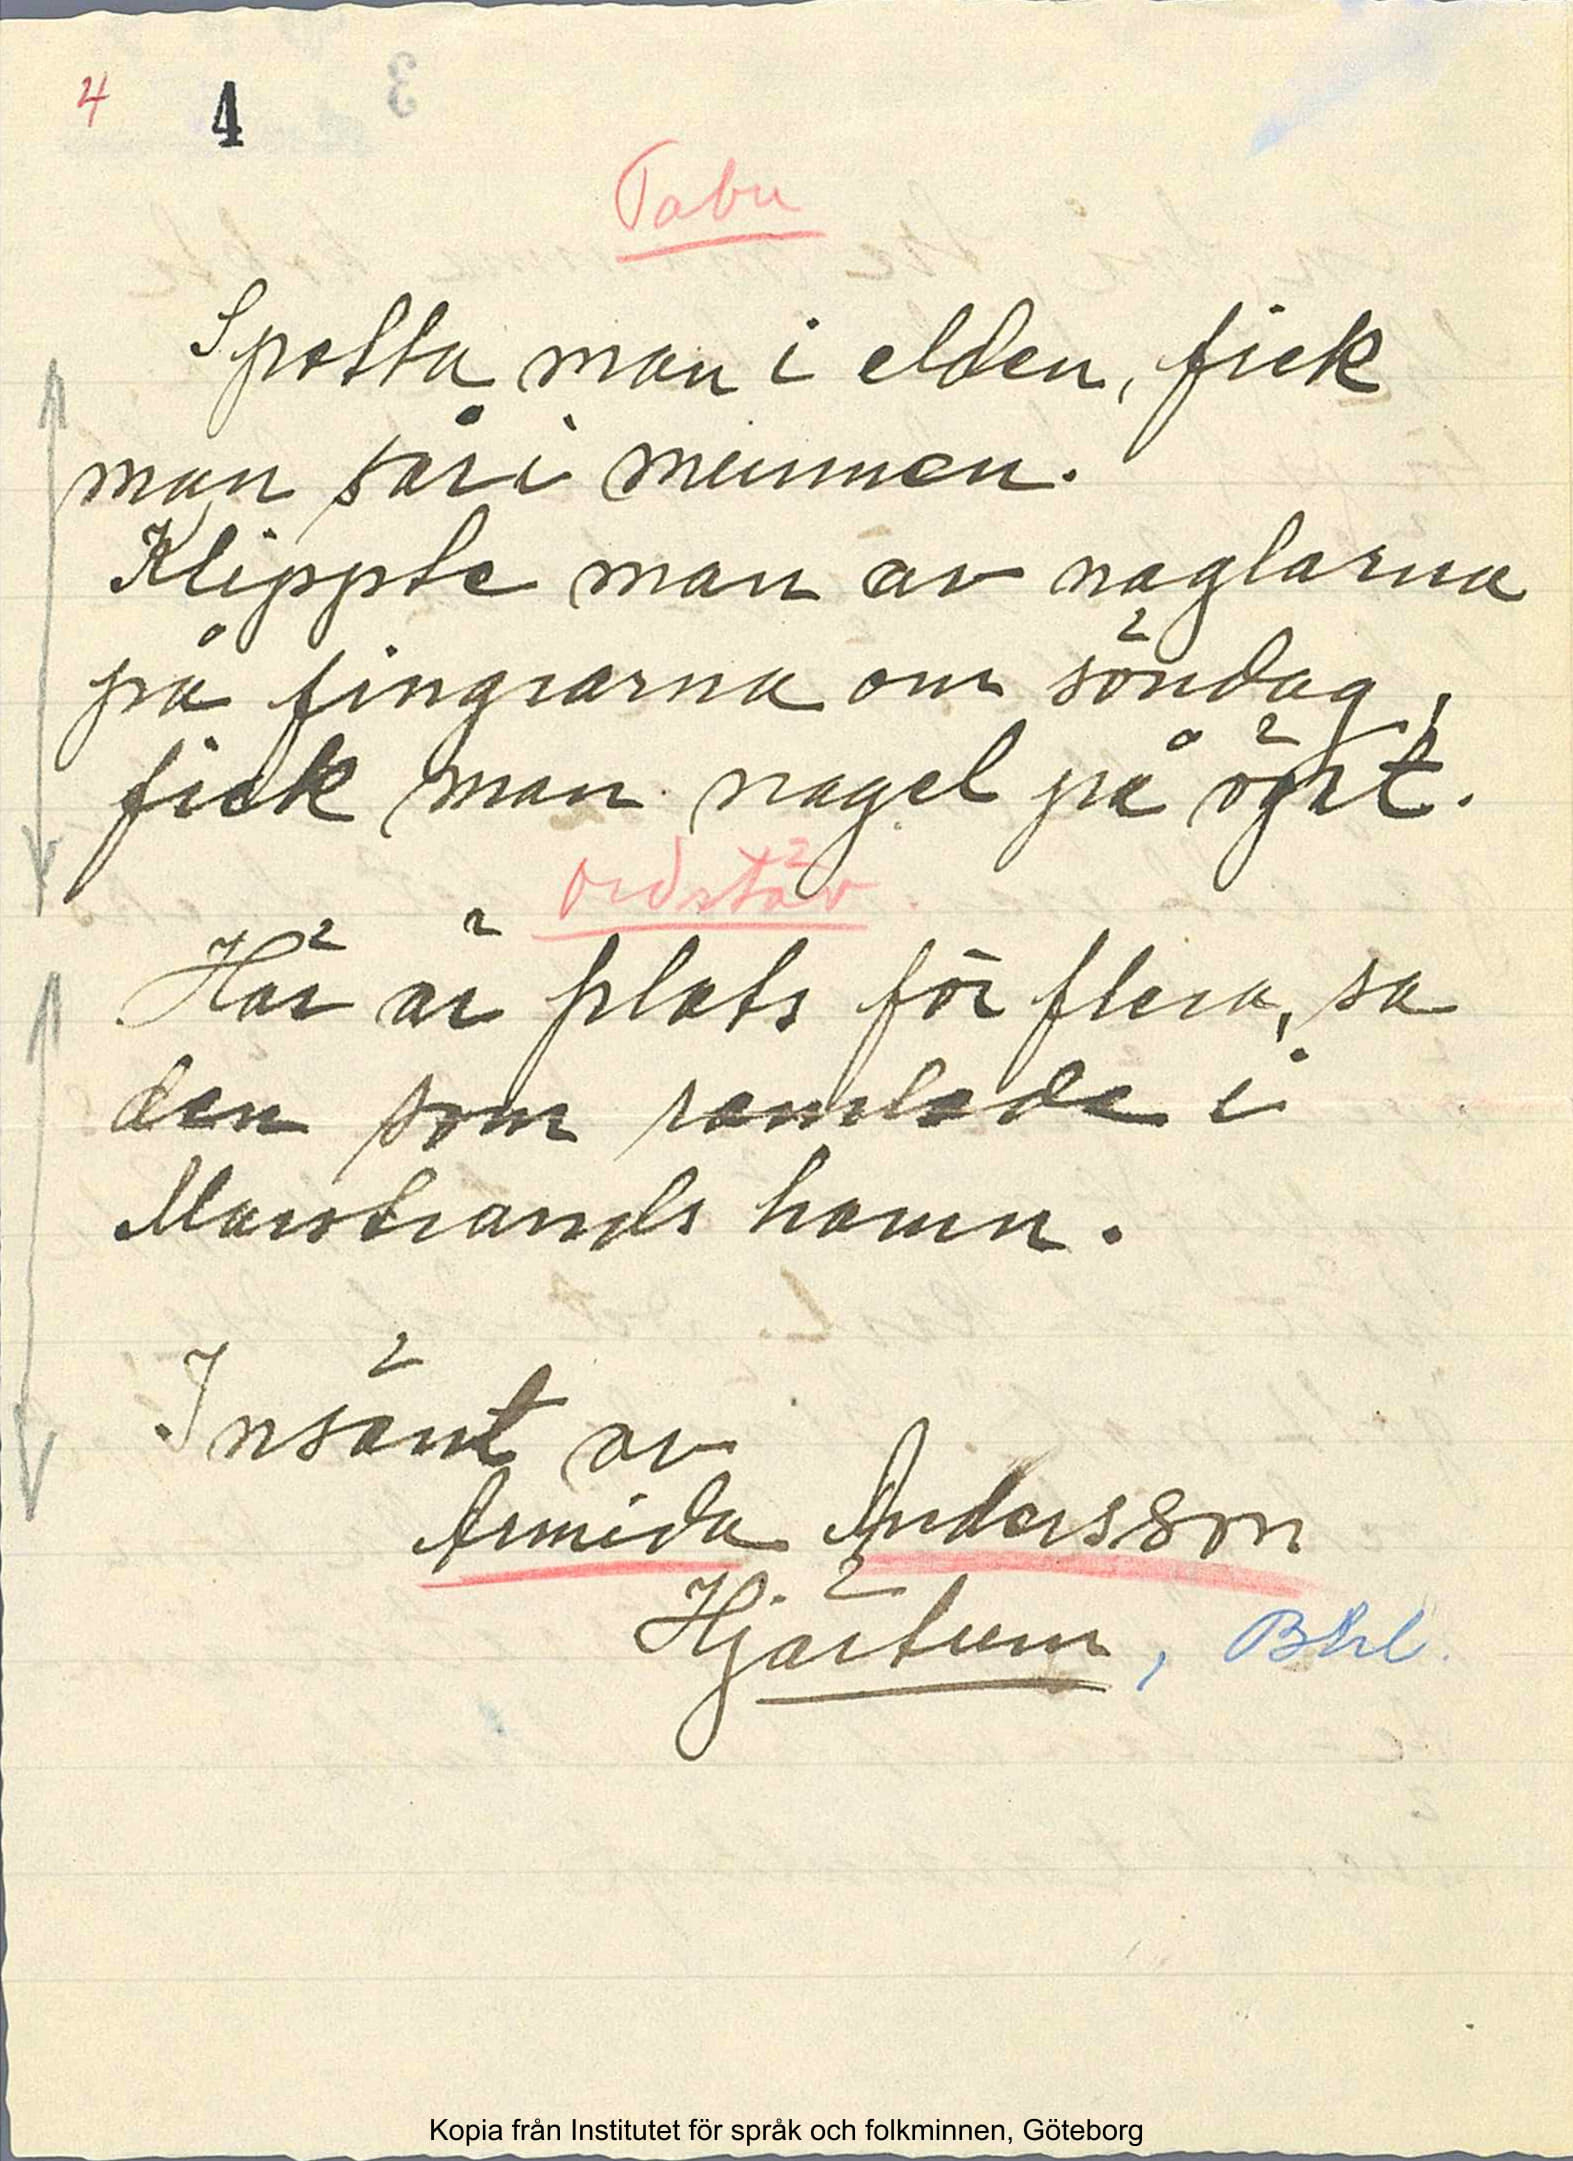 4 4
Tabu
Spotta man i elden, fick
man sår i munnen.
Klippte man av naglarna
på fingrarna om söndag,
fick man nagel på ögat.
Ordstäv.
Här är plats för flera, sa
den som ramlade i
Marstrands hamn.
Insänt av
Armida Andersson
Hjärtum, Bhl.
Kopia från Institutet för språk och folkminnen, Göteborg